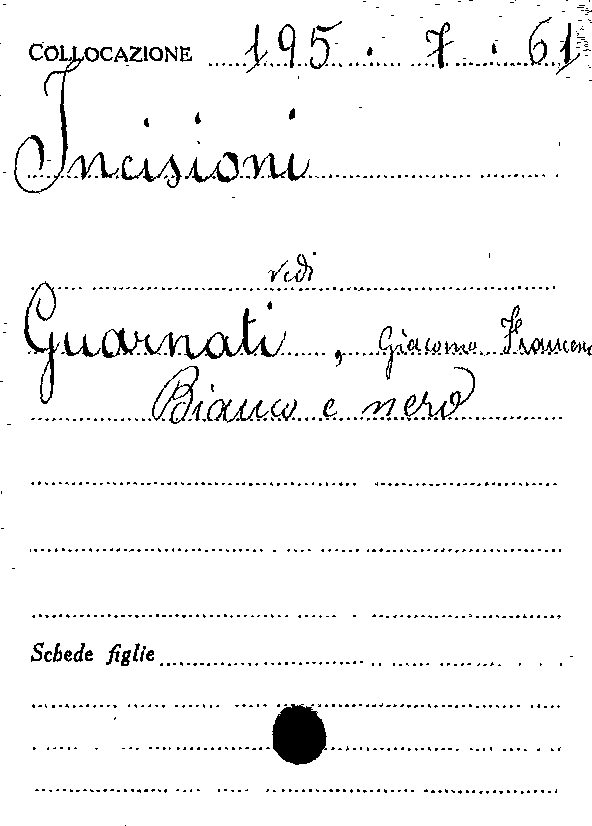 COLLOCAZIONE 195.7.61
Incisioni
vedi
Guarnati, Giacomo Francesco
Bianco e nero
Schede figlie